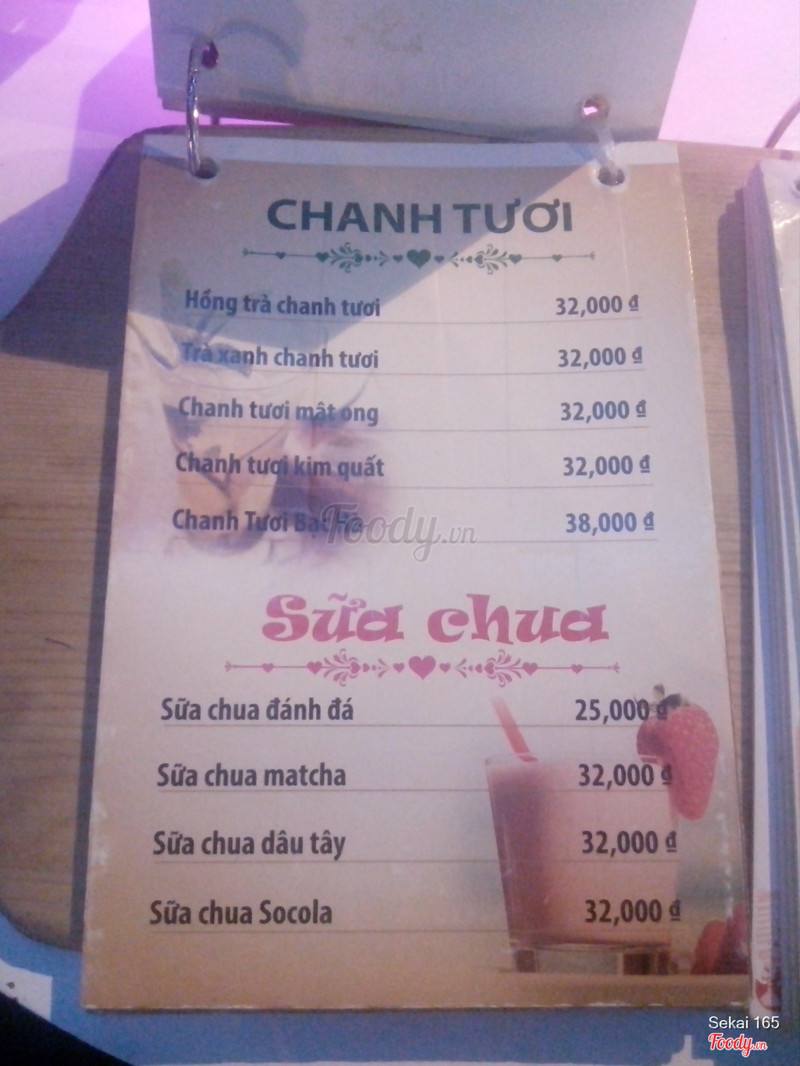 CHANH TƯƠI
Hồng trà chanh tươi 32,000 đ
Trà xanh chanh tươi 32,000 đ
Chanh tươi mật ong 32,000 đ
Chanh tươi kim quất 32,000 đ
Chanh Tươi Bạc Hà 38,000 đ
Foody.vn
Sữa chua
Sữa chua đánh đá 25,000 đ
Sữa chua matcha 32,000 đ
Sữa chua dâu tây 32,000 đ
Sữa chua Socola 32,000 đ
Sekai 165
Foody.vn